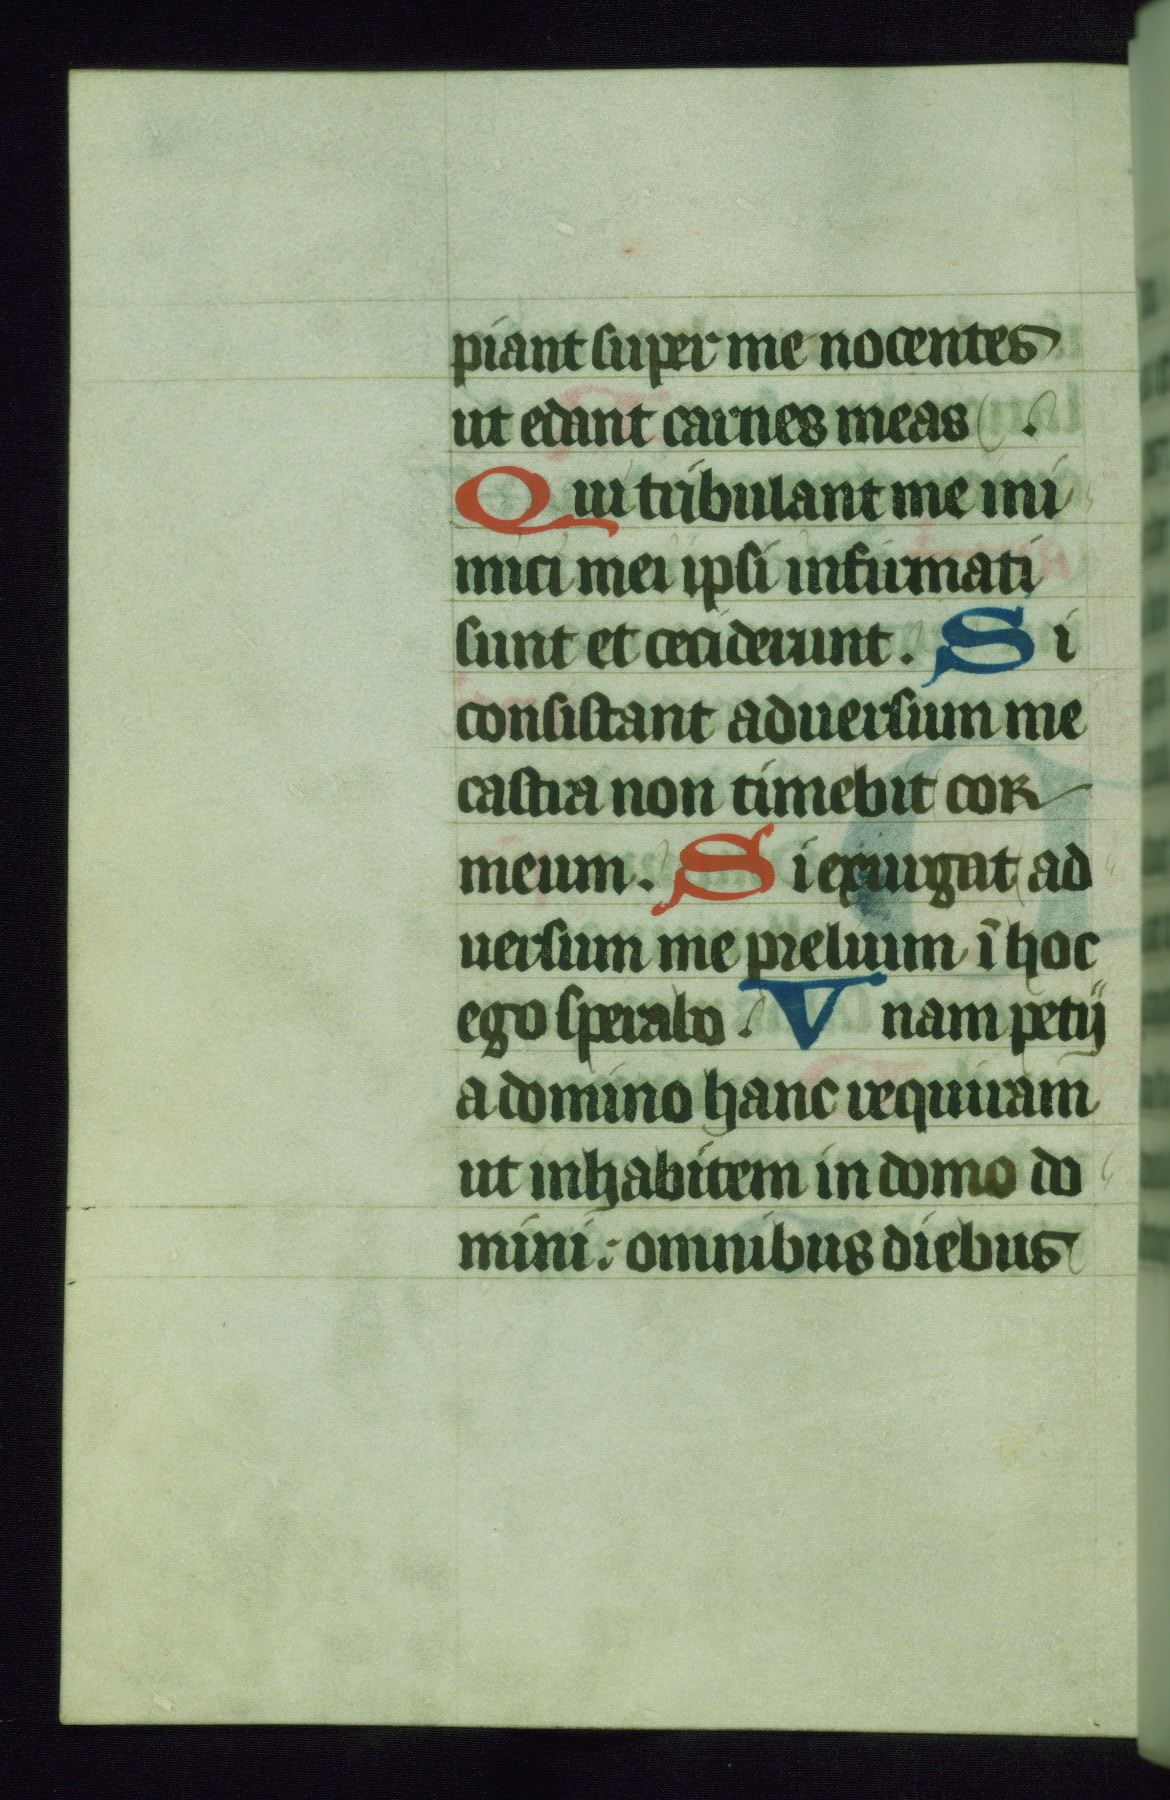 piant super me nocentes
ut edant carnes meas .
Qui tribulant me ini
mici mei ipsi infirmati
sunt et ceciderunt. Si
consistant aduersum me
castra non timebit cor
meum. Si exurgat ad
uersum me prelium ī hoc
ego sperabo. Vnam petij
a domino hanc requiram
ut inhabitem in domo do
mini: omnibus diebus